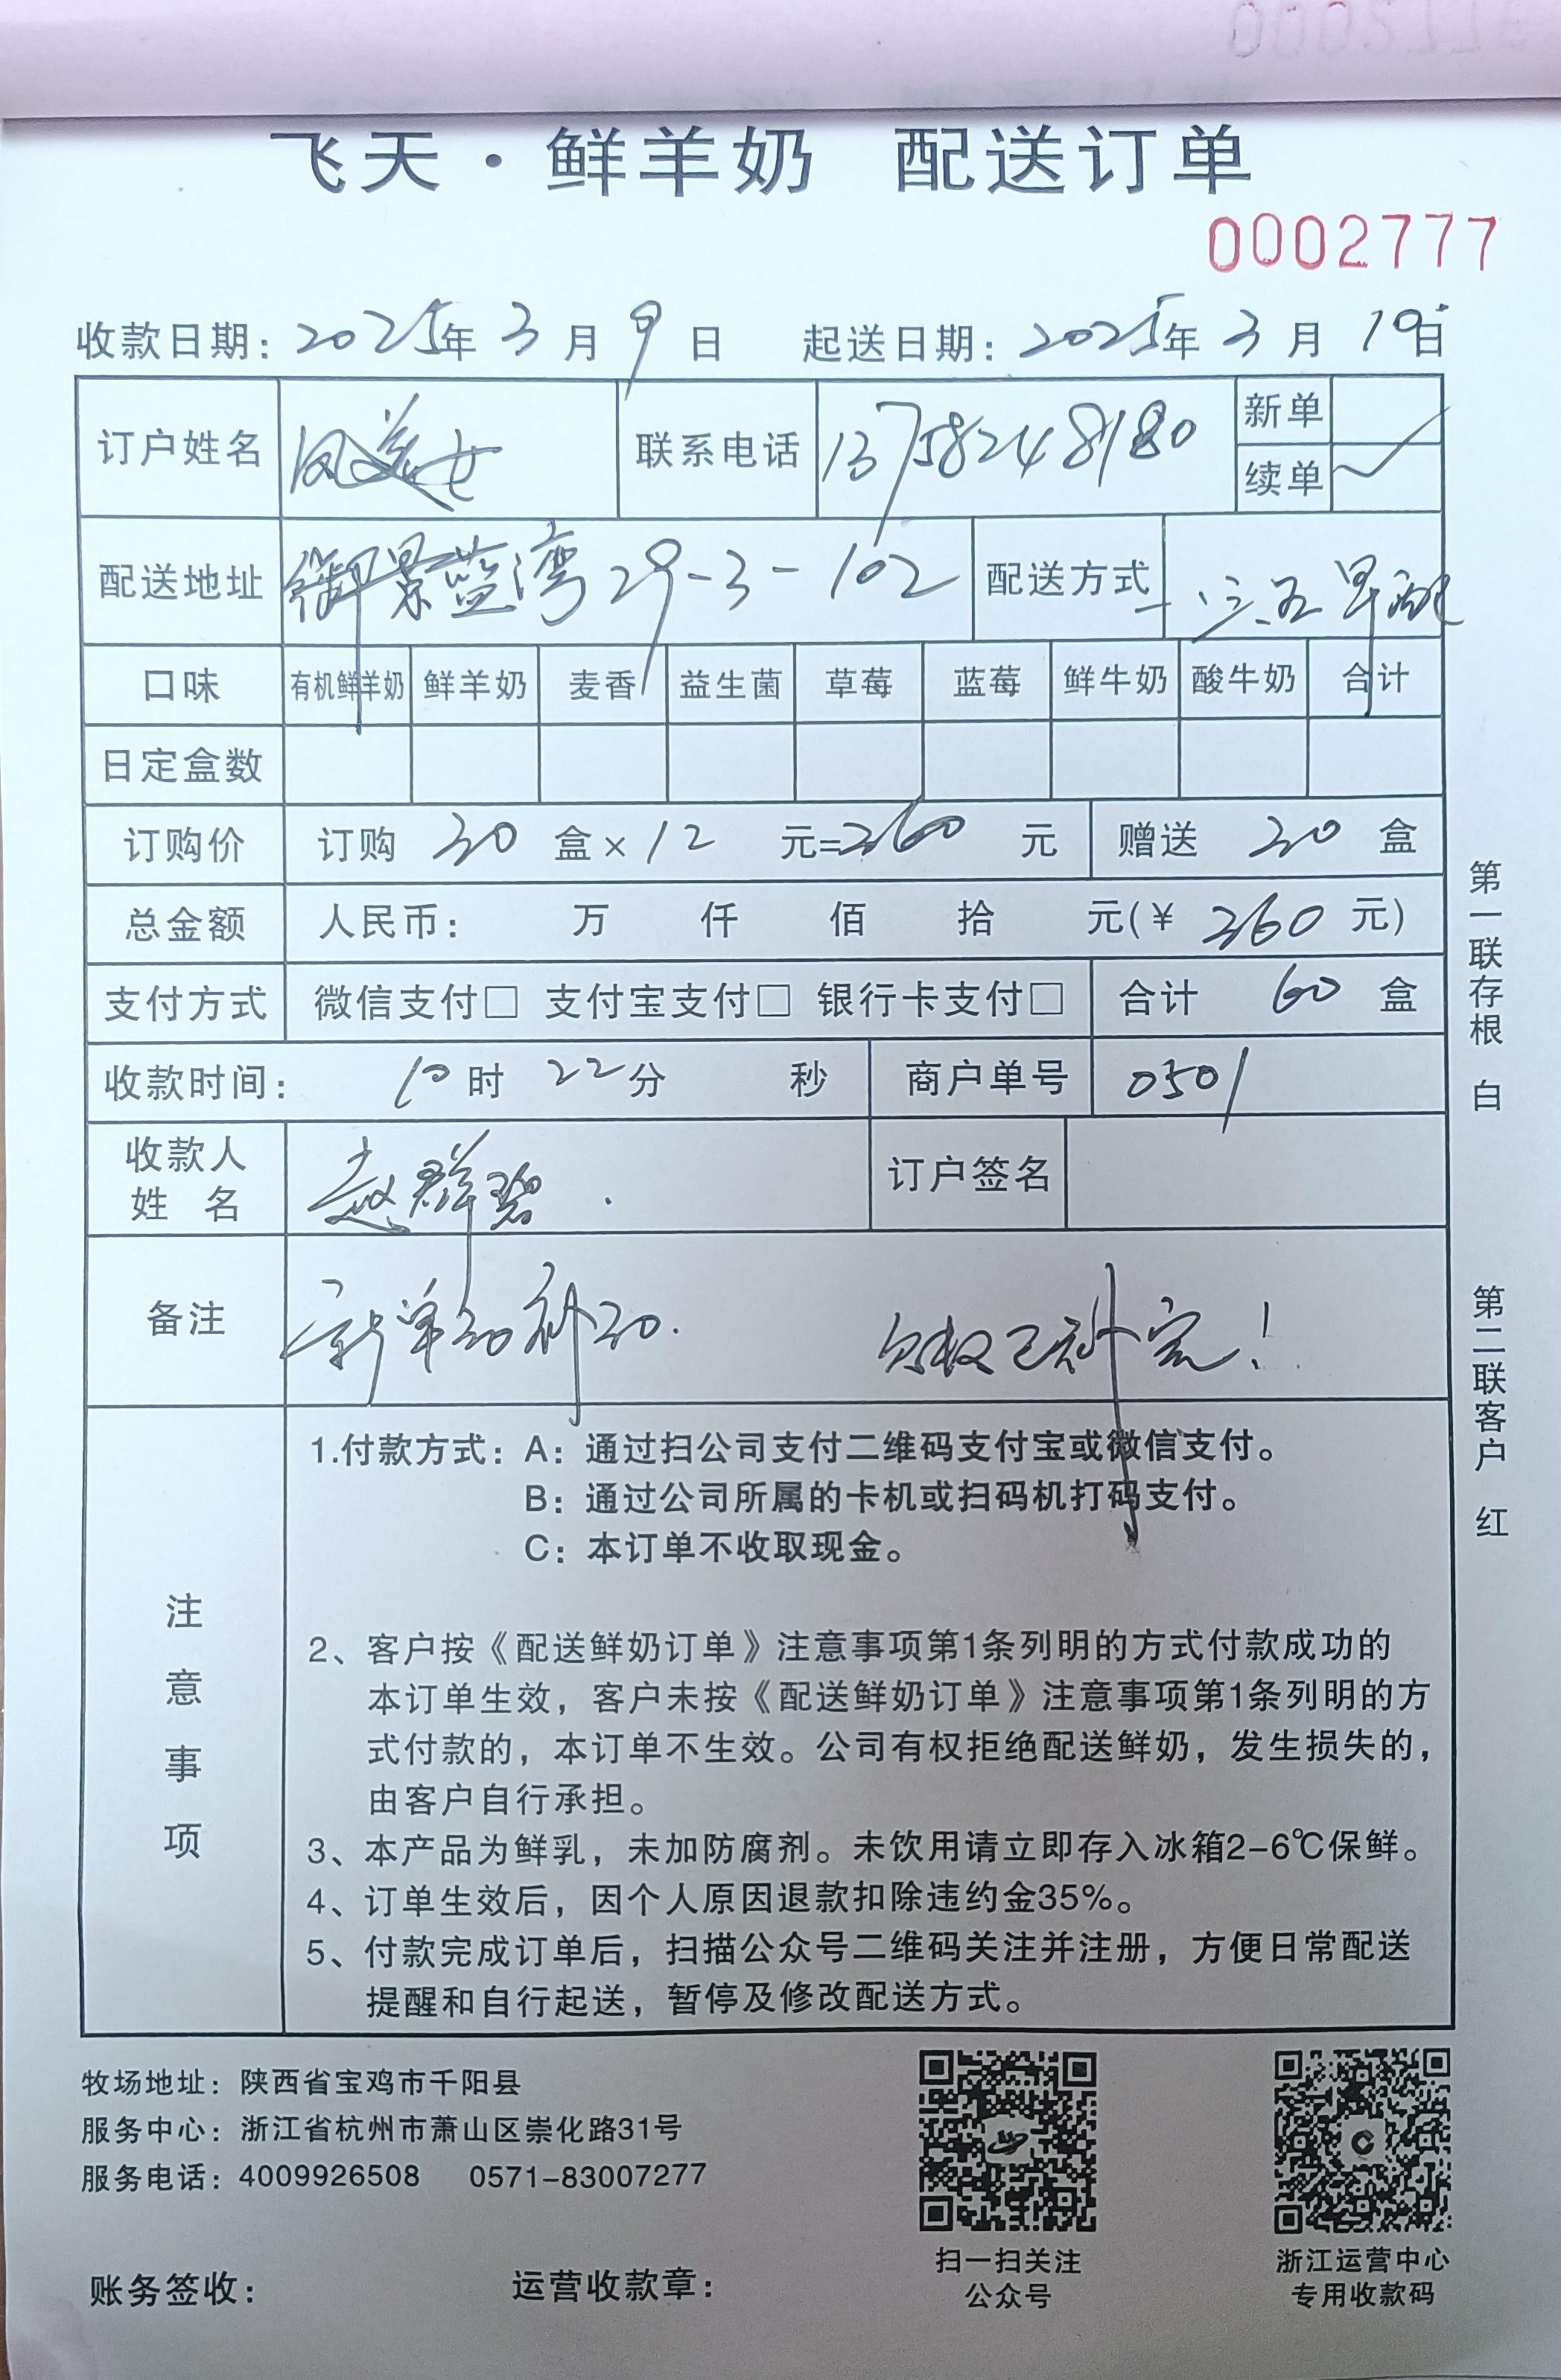 飞天·鲜羊奶 配送订单
0002777
收款日期：2025年3月9日 起送日期：2025年3月10日
订户姓名 联系电话 13758248180 新单
续单 ✓
配送地址 御景蓝湾29-3-102 配送方式 一、三、五早配
口味 有机鲜羊奶 鲜羊奶 麦香 益生菌 草莓 蓝莓 鲜牛奶 酸牛奶 合计
日定盒数
订购价 订购 30 盒×12 元=360 元 赠送 30 盒
总金额 人民币： 万 仟 佰 拾 元(￥360元)
支付方式 微信支付□ 支付宝支付□ 银行卡支付□ 合计 60 盒
收款时间： 10时22分 秒 商户单号 0501
收款人
姓 名 赵群碧 订户签名
备注 新单30补30. 已补完！
注意事项
1.付款方式：A：通过扫公司支付二维码支付宝或微信支付。
B：通过公司所属的卡机或扫码机打码支付。
C：本订单不收取现金。
2、客户按《配送鲜奶订单》注意事项第1条列明的方式付款成功的
本订单生效，客户未按《配送鲜奶订单》注意事项第1条列明的方
式付款的，本订单不生效。公司有权拒绝配送鲜奶，发生损失的，
由客户自行承担。
3、本产品为鲜乳，未加防腐剂。未饮用请立即存入冰箱2-6℃保鲜。
4、订单生效后，因个人原因退款扣除违约金35%。
5、付款完成订单后，扫描公众号二维码关注并注册，方便日常配送
提醒和自行起送，暂停及修改配送方式。
第一联存根 白
第二联客户 红
牧场地址：陕西省宝鸡市千阳县
服务中心：浙江省杭州市萧山区崇化路31号
服务电话：4009926508 0571-83007277
扫一扫关注
公众号
浙江运营中心
专用收款码
账务签收： 运营收款章：